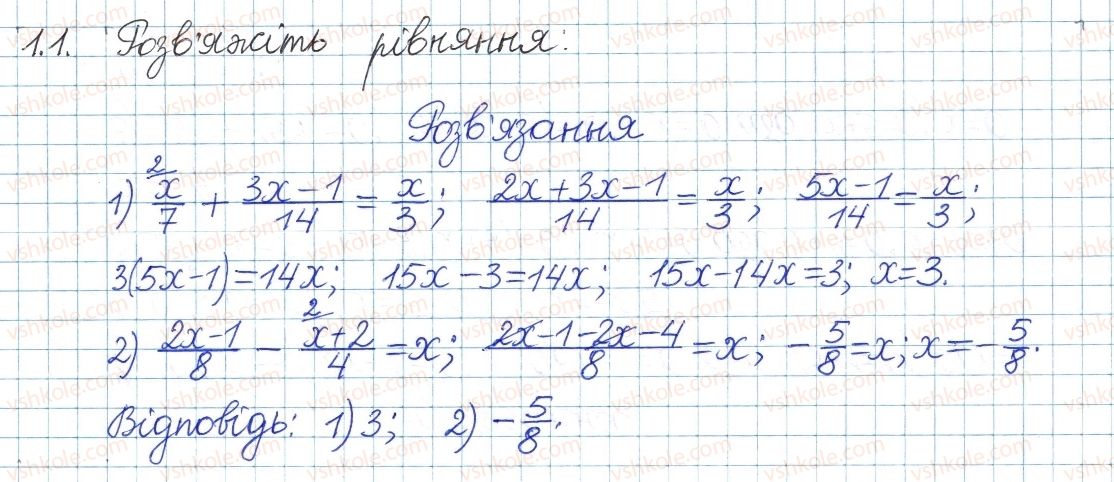 1.1. Розв'яжіть рівняння:
Розв'язання
1) ²x/7 + (3x-1)/14 = x/3; (2x+3x-1)/14 = x/3; (5x-1)/14 = x/3;
3(5x-1)=14x; 15x-3=14x; 15x-14x=3; x=3.
2) (2x-1)/8 - ²(x+2)/4 = x; (2x-1-2x-4)/8 = x; -5/8=x; x=-5/8.
Відповідь: 1) 3; 2) -5/8.